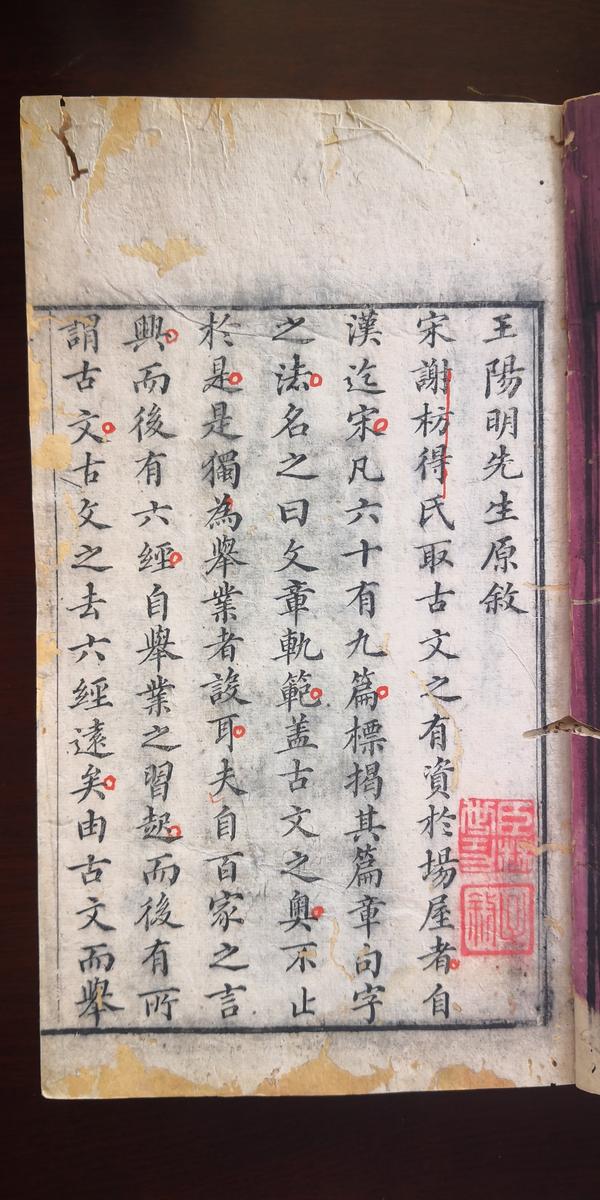 王陽明先生原敘
宋謝枋得氏取古文之有資於場屋者自
漢迄宋凡六十有九篇標揭其篇章句字
之法名之曰文章軌範盖古文之奥不止
於是是獨為舉業者設耳夫自百家之言
興而後有六經自舉業之習起而後有所
謂古文古文之去六經遠矣由古文而舉